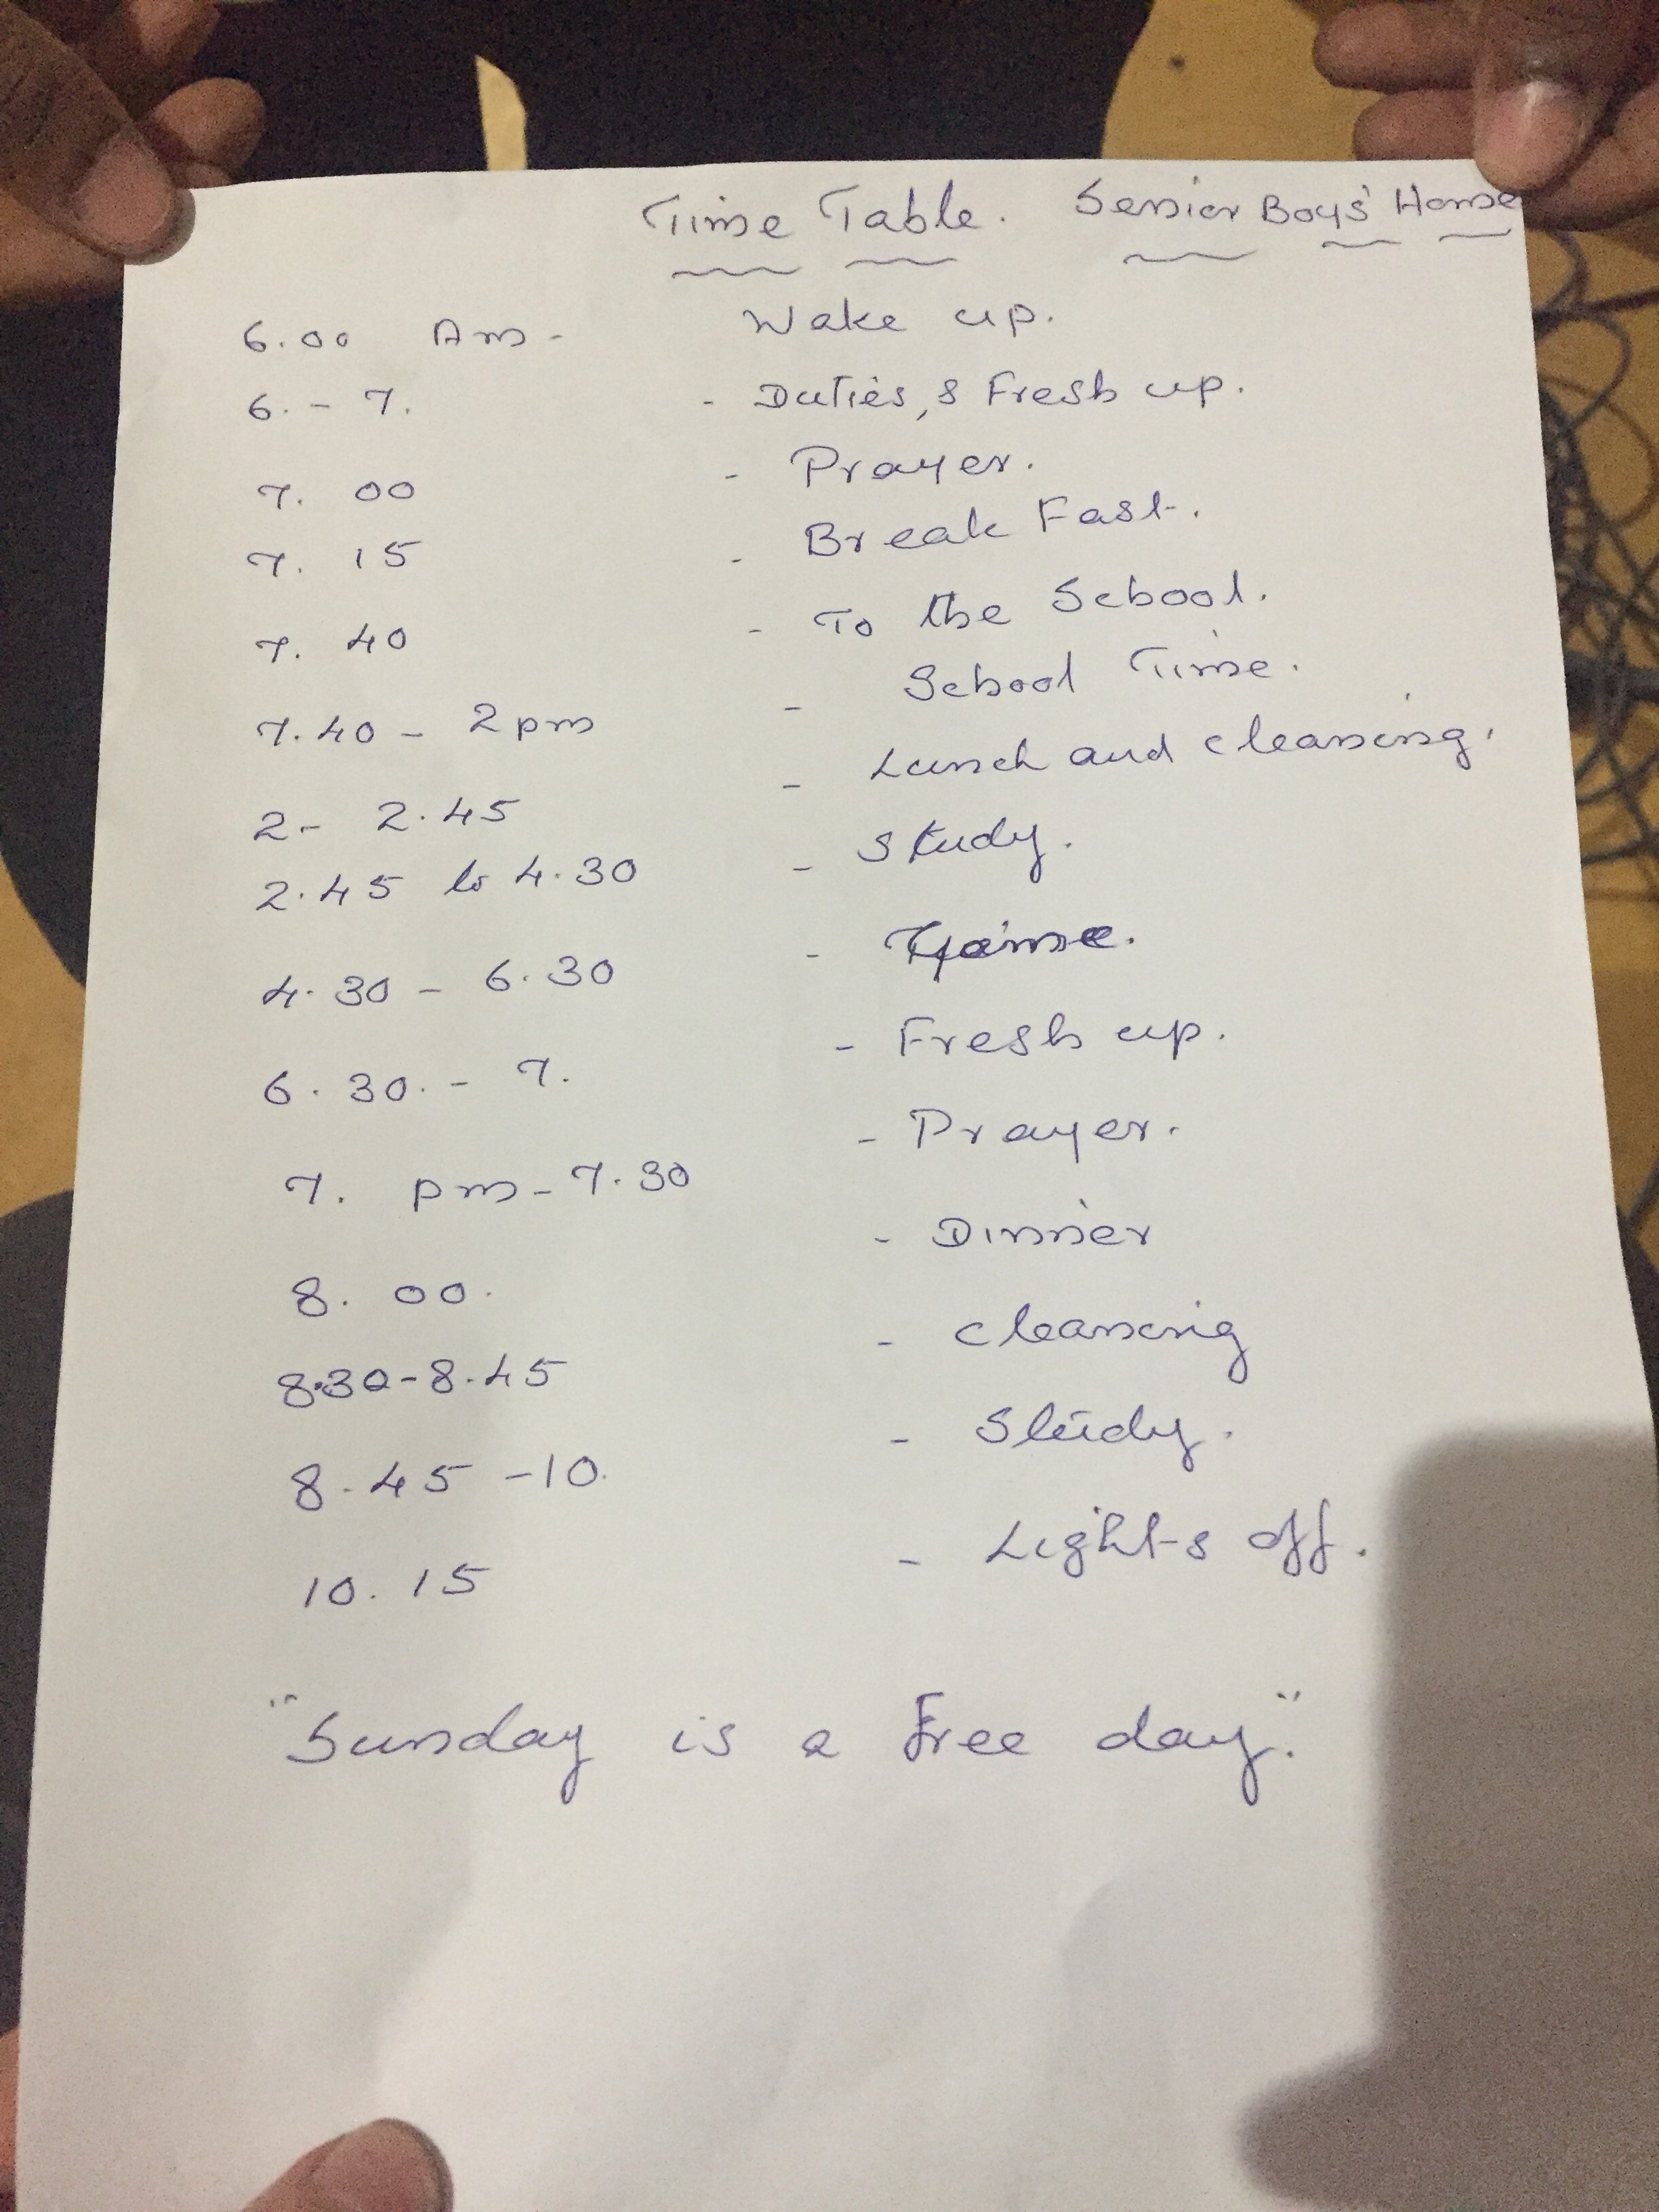 Time Table. Senior Boys' Home
6.00 Am - Wake up.
6. - 7. - Duties, & Fresh up.
7. 00 - Prayer.
7. 15 - Break Fast.
7. 40 - To the School.
7.40 - 2pm - School Time.
2 - 2.45 - Lunch and cleaning.
2.45 to 4.30 - Study.
4.30 - 6.30 -
6.30. - 7. - Fresh up.
7. pm - 7.30 - Prayer.
8. 00. - Dinner
8.30 - 8.45 - cleaning
8.45 - 10. - Study.
10.15 - Lights off.
"Sunday is a Free day."